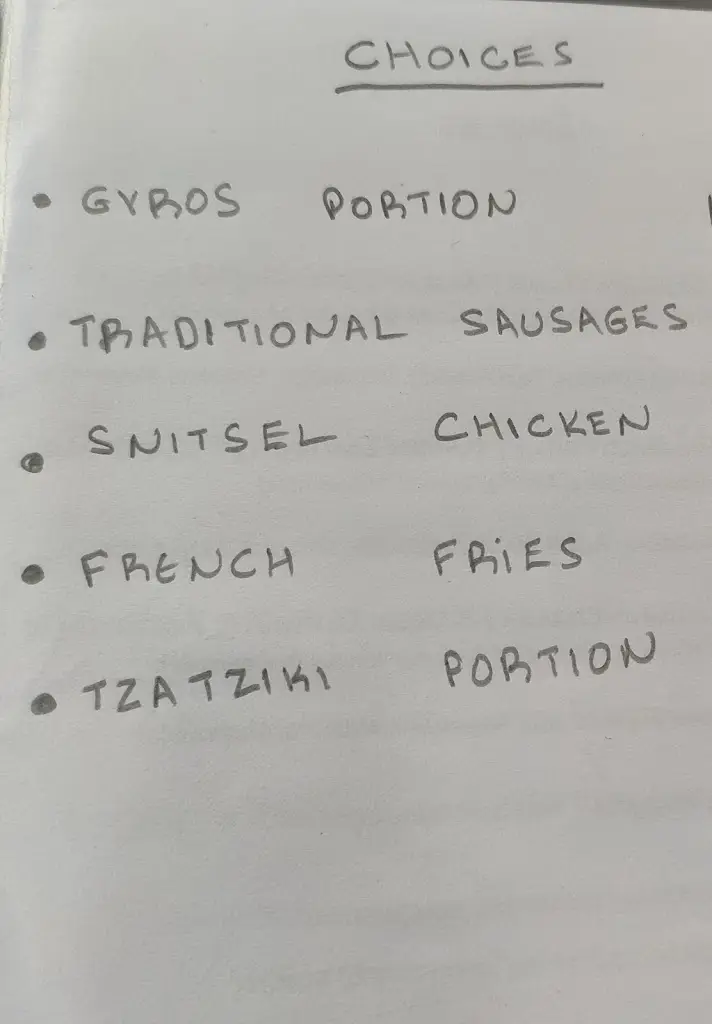 CHOICES
• GYROS PORTION
• TRADITIONAL SAUSAGES
• SNITSEL CHICKEN
• FRENCH FRiES
• TZATZIKI PORTION